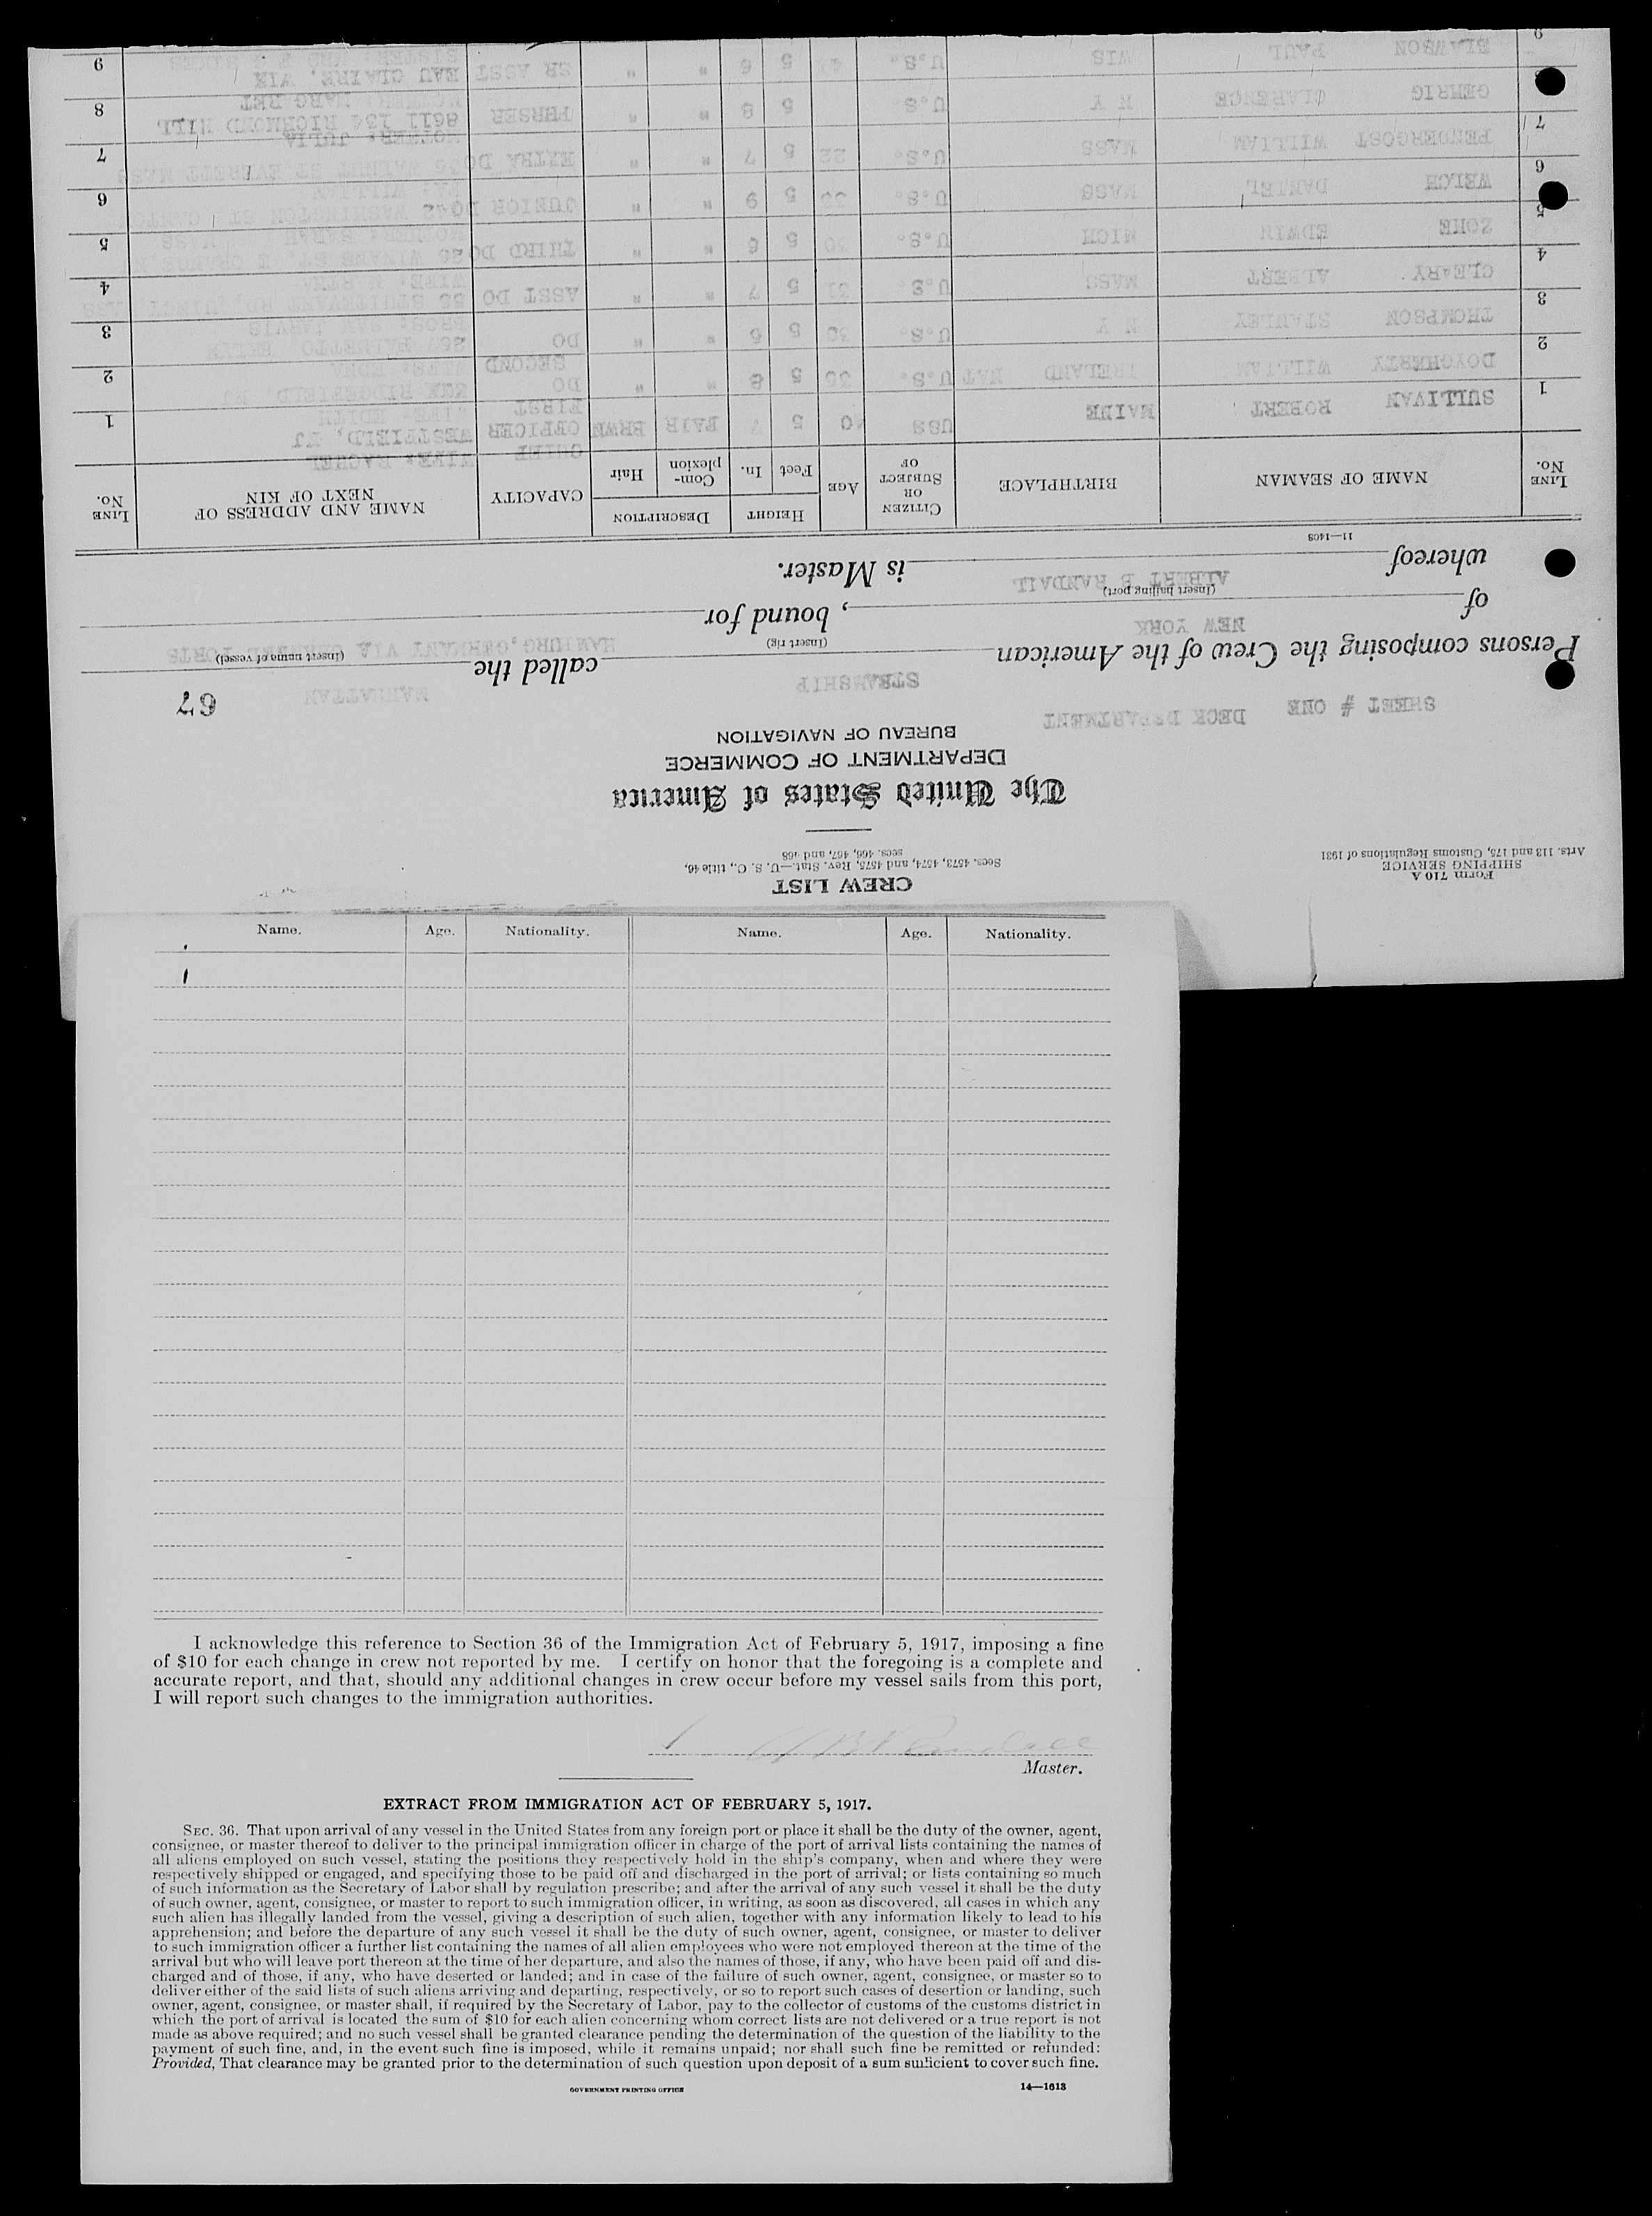 Form 710 A
SHIPPING SERVICE
Arts. 113 and 175, Customs Regulations of 1931
CREW LIST
Secs. 4573, 4574, and 4575, Rev. Stat.—U. S. C., title 46,
secs. 466, 467, and 468
The United States of America
DEPARTMENT OF COMMERCE
BUREAU OF NAVIGATION
SHEET # ONE DECK DEPARTMENT
STEAMSHIP MANHATTAN 67
Persons composing the Crew of the American called the
(Insert rig) (Insert name of vessel)
NEW YORK HAMBURG, GERMANY VIA PORTS
of , bound for
(Insert hailing port)
ALBERT B RANDALL
whereof is Master.
11—1408
LINE No. NAME OF SEAMAN BIRTHPLACE CITIZEN OR SUBJECT OF AGE HEIGHT Feet In. DESCRIPTION Complexion Hair CAPACITY NAME AND ADDRESS OF NEXT OF KIN LINE No.
1 SULLIVAN ROBERT MAINE USS 40 5 7 FAIR BRWN OFFICER WESTFIELD, NJ 1
FIRST WIFE: EDITH
2 DOUGHERTY WILLIAM IRELAND NAT U.S. 35 5 8 " " DO RIDGEFIELD, NJ 2
SECOND WIFE: EDNA
3 THOMPSON STANLEY N Y U.S. 30 5 6 " " DO 367 PALMETTO 3
4 CLEARY ALBERT MASS U.S. 31 5 7 " " ASST DO 4
5 ZOHE EDWIN MICH U.S. 30 5 8 " " THIRD DO 5
6 WELCH DANIEL MASS U.S. 5 9 " " JUNIOR DO WASHINGTON ST 6
7 PENDERGOST WILLIAM MASS U.S. 22 5 7 " " EXTRA DO WALNUT ST EVERETT MASS 7
MOTHER: JULIA
8 GEHRIG CLARENCE N Y U.S. 5 8 " " PURSER 8611 134 RICHMOND HILL 8
MOTHER: MARGARET
9 SLAWSON PAUL WIS U.S. 5 6 " " SR ASST EAU CLAIRE, WIS 9
Name. Age. Nationality. Name. Age. Nationality.
I acknowledge this reference to Section 36 of the Immigration Act of February 5, 1917, imposing a fine
of $10 for each change in crew not reported by me. I certify on honor that the foregoing is a complete and
accurate report, and that, should any additional changes in crew occur before my vessel sails from this port,
I will report such changes to the immigration authorities.
A B Randall
Master.
EXTRACT FROM IMMIGRATION ACT OF FEBRUARY 5, 1917.
SEC. 36. That upon arrival of any vessel in the United States from any foreign port or place it shall be the duty of the owner, agent,
consignee, or master thereof to deliver to the principal immigration officer in charge of the port of arrival lists containing the names of
all aliens employed on such vessel, stating the positions they respectively hold in the ship's company, when and where they were
respectively shipped or engaged, and specifying those to be paid off and discharged in the port of arrival; or lists containing so much
of such information as the Secretary of Labor shall by regulation prescribe; and after the arrival of any such vessel it shall be the duty
of such owner, agent, consignee, or master to report to such immigration officer, in writing, as soon as discovered, all cases in which any
such alien has illegally landed from the vessel, giving a description of such alien, together with any information likely to lead to his
apprehension; and before the departure of any such vessel it shall be the duty of such owner, agent, consignee, or master to deliver
to such immigration officer a further list containing the names of all alien employees who were not employed thereon at the time of the
arrival but who will leave port thereon at the time of her departure, and also the names of those, if any, who have been paid off and dis-
charged and of those, if any, who have deserted or landed; and in case of the failure of such owner, agent, consignee, or master so to
deliver either of the said lists of such aliens arriving and departing, respectively, or so to report such cases of desertion or landing, such
owner, agent, consignee, or master shall, if required by the Secretary of Labor, pay to the collector of customs of the customs district in
which the port of arrival is located the sum of $10 for each alien concerning whom correct lists are not delivered or a true report is not
made as above required; and no such vessel shall be granted clearance pending the determination of the question of the liability to the
payment of such fine, and, in the event such fine is imposed, while it remains unpaid; nor shall such fine be remitted or refunded:
Provided, That clearance may be granted prior to the determination of such question upon deposit of a sum sufficient to cover such fine.
GOVERNMENT PRINTING OFFICE 14—1613